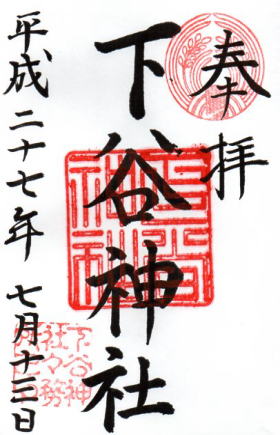 奉拝
下谷神社
平成二十七年 七月十三日
下谷神社
下谷神
社々務
所之印